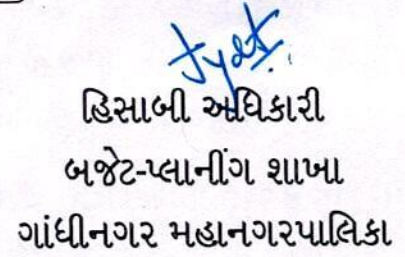 હિસાબી અધિકારી
બજેટ-પ્લાનીંગ શાખા
ગાંધીનગર મહાનગરપાલિકા